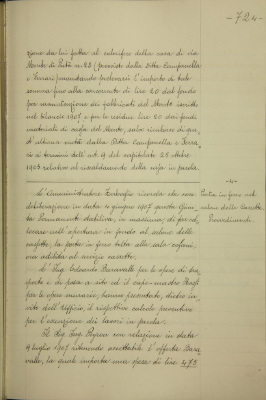 - 724 -
zione da lui fatta al calorifero della casa di via
Monte di Pietà n. 28 (proviste dalla Ditta Campanella
e Ferrari) mandando prelevarsi l'importo di tale
somma fino alla concorrenza di lire 20 dal fondo
per manutenzione dei fabbricati del Monte iscritto
nel bilancio 1907 e per le residue lire 20 dai fondi
materiali di cassa del Monte, salvo rimborso di que-
st'ultima metà dalla Ditta Campanella e Ferra-
ri ai termini dell'art. 9 del capitolato 28 Ottobre
1903 relativo al riscaldamento della casa in parola.
- 4 -
Porta in ferro nel
salone delle Cassette.
Provvedimenti.
L'Amministratore ricorda che con
deliberazione in data 4 giugno 1907 questa Giun-
ta Permanente stabiliva, in massima, di far col-
locare nell'apertura in fondo al salone delle
cassette, la porta in ferro tolta alla sala
ora adibita al servizio cassette.
L'Ing. Edoardo Baravalle per le opere di tra-
sporto e di posa a sito ed il capo-mastro
per le opere murarie, hanno presentato, dietro in-
vito dell'Ufficio, il rispettivo calcolo preventivo
per l'esecuzione dei lavori in parola.
Il Sig. Ing. con relazione in data
9 luglio 1907 ritenendo accettabile l'offerta Bara-
valle, la quale importa una spesa di lire 475